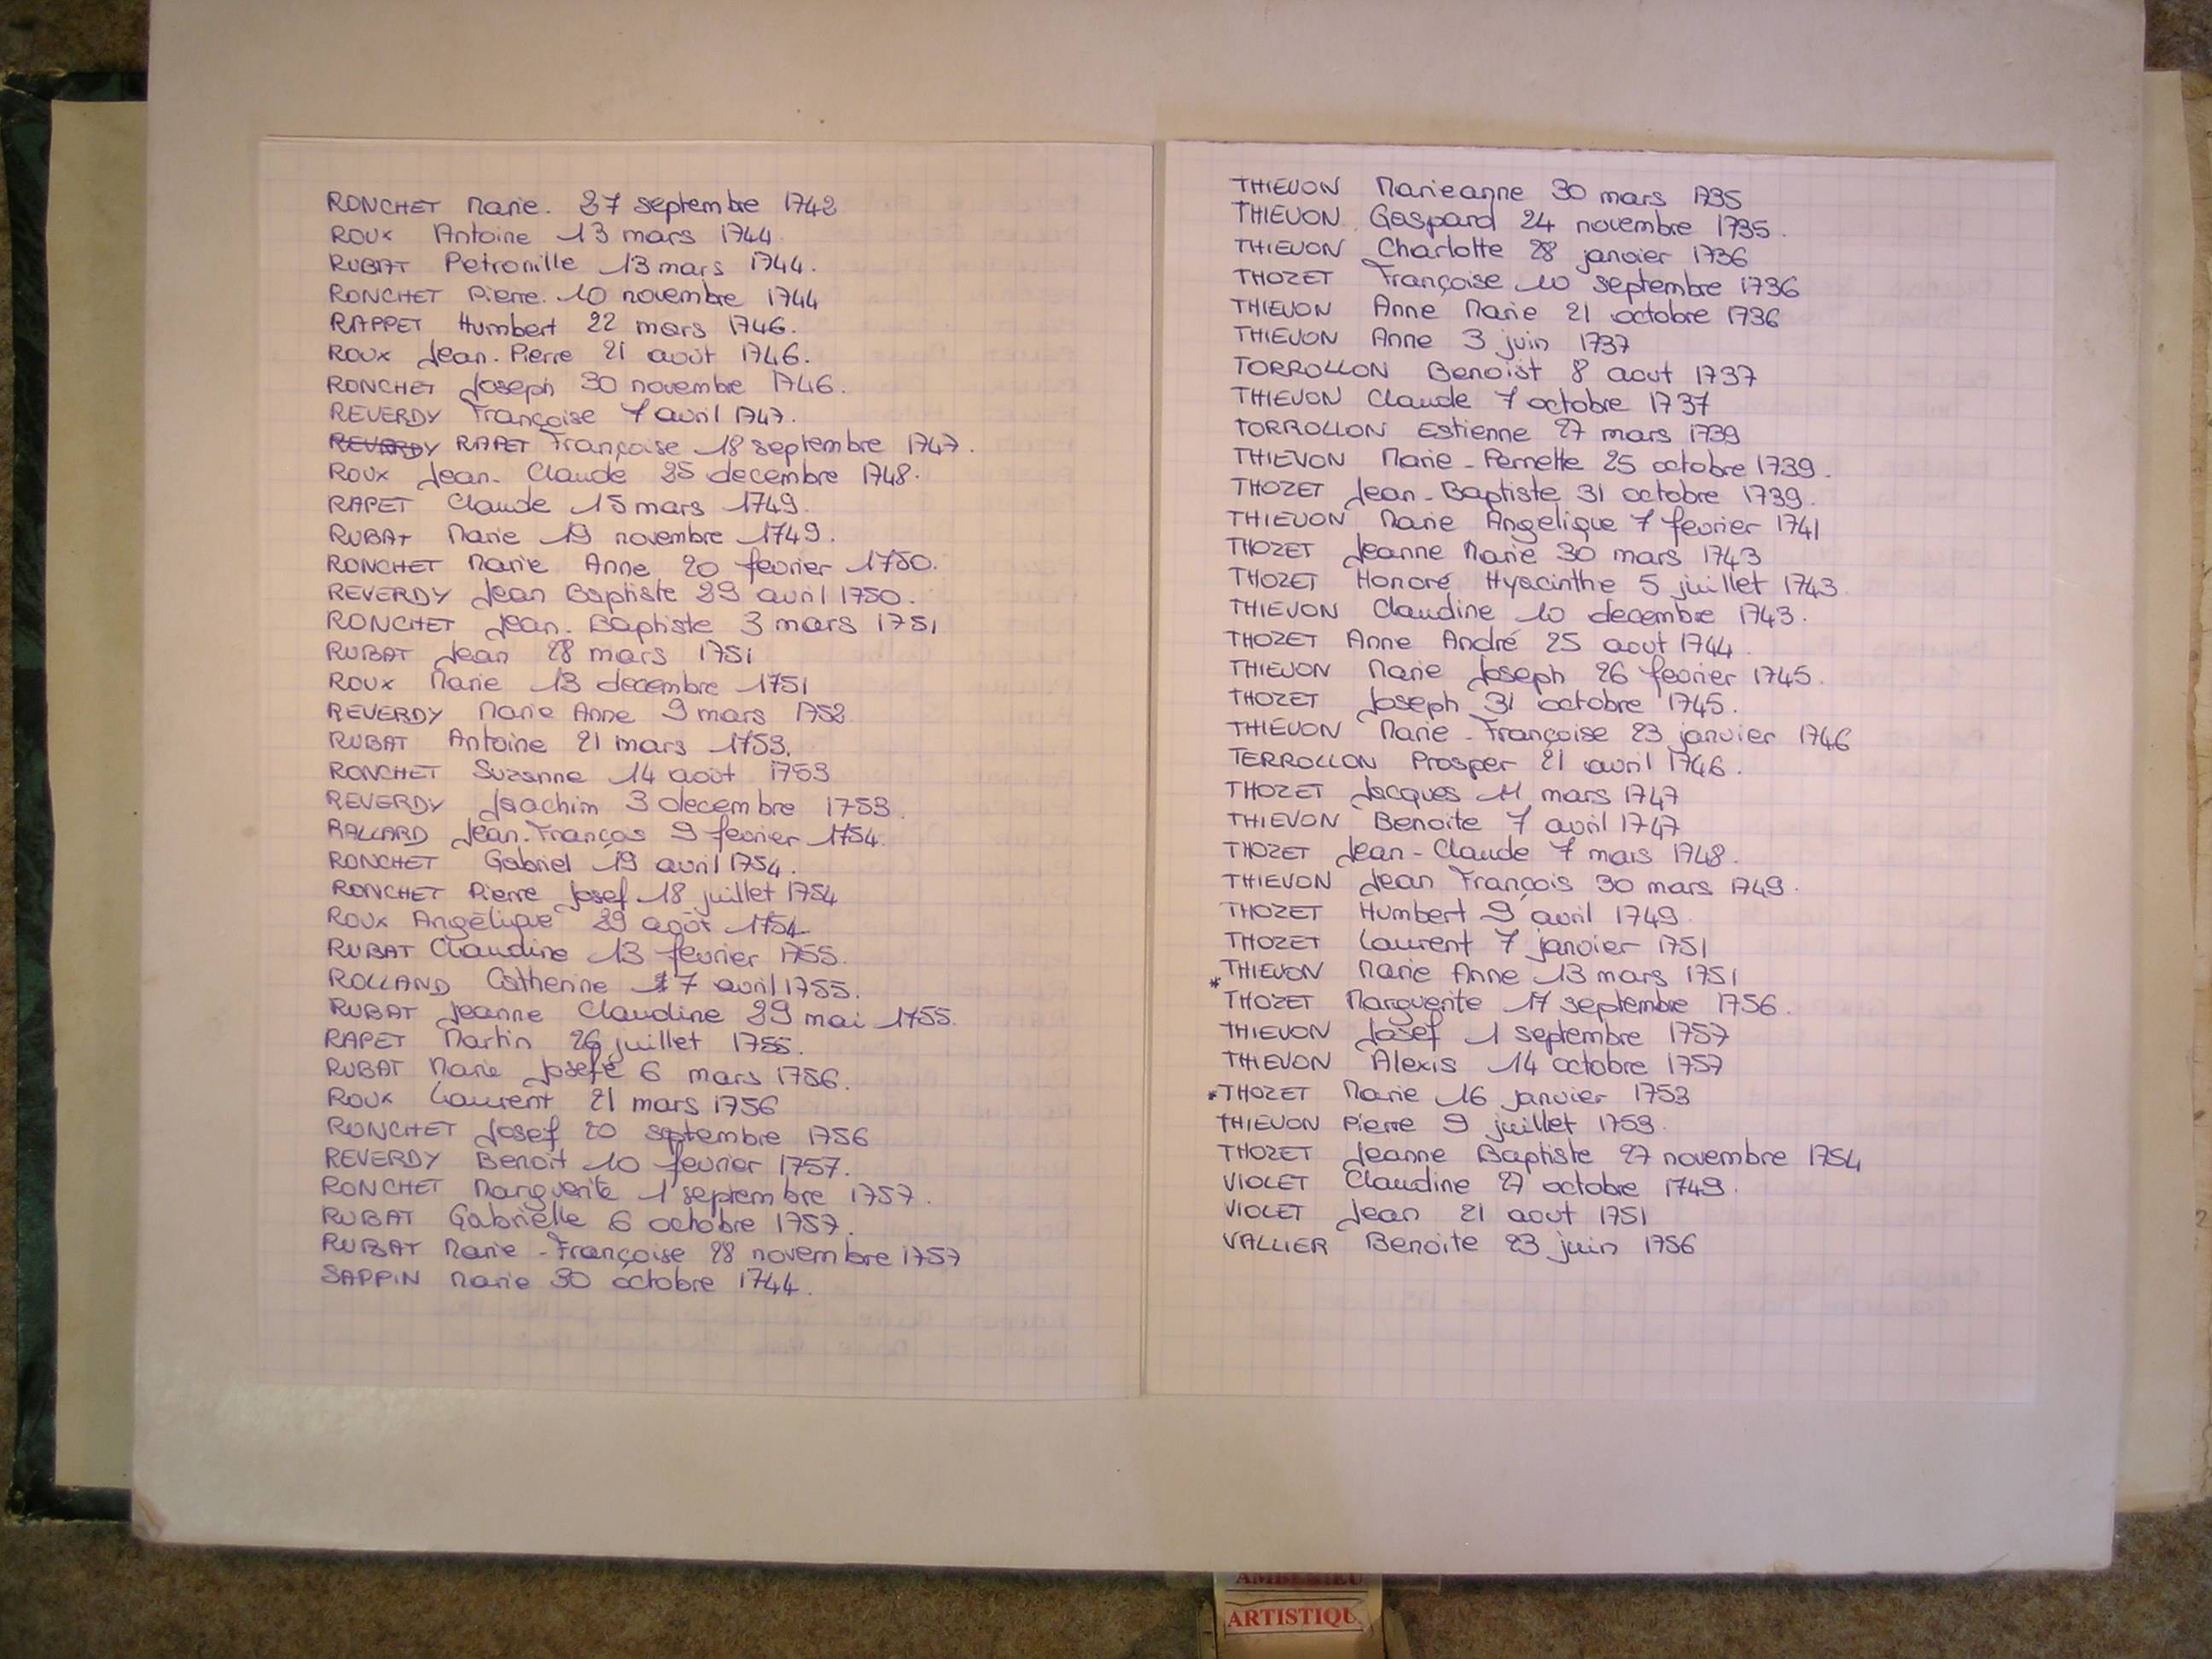 RONCHET Marie. 27 septembre 1742
ROUX Antoine 13 mars 1744
RUBAT Petronille 13 mars 1744.
RONCHET Pierre. 10 novembre 1744
RAPPET Humbert 22 mars 1746.
ROUX Jean-Pierre 21 août 1746.
RONCHET Joseph 30 novembre 1746.
REVERDY Françoise 7 avril 1747.
REVERDY RAPET Françoise 18 septembre 1747.
ROUX Jean-Claude 25 decembre 1748.
RAPET Claude 15 mars 1749.
RUBAT Marie 19 novembre 1749.
RONCHET Marie Anne 20 fevrier 1750.
REVERDY Jean Baptiste 29 avril 1750.
RONCHET Jean-Baptiste 3 mars 1751
RUBAT Jean 28 mars 1751
ROUX Marie 13 decembre 1751
REVERDY Marie Anne 9 mars 1752
RUBAT Antoine 21 mars 1753.
RONCHET Suzanne 14 août 1753
REVERDY Joachim 3 decembre 1753.
RALLARD Jean-François 9 fevrier 1754.
RONCHET Gabriel 19 avril 1754.
RONCHET Pierre Josef 18 juillet 1754
ROUX Angélique 29 août 1754
RUBAT Claudine 13 fevrier 1755.
ROLLAND Catherine 7 avril 1755.
RUBAT Jeanne Claudine 29 mai 1755.
RAPET Martin 26 juillet 1755.
RUBAT Marie Josefe 6 mars 1756.
ROUX Laurent 21 mars 1756
RONCHET Josef 20 septembre 1756
REVERDY Benoit 10 fevrier 1757.
RONCHET Marguerite 1 septembre 1757.
RUBAT Gabrielle 6 octobre 1757.
RUBAT Marie-Françoise 28 novembre 1757
SAPPIN Marie 30 octobre 1744.
THIEVON Marieanne 30 mars 1735
THIEVON Gaspard 24 novembre 1735.
THIEVON Charlotte 28 janvier 1736
THOZET Françoise 10 septembre 1736
THIEVON Anne Marie 21 octobre 1736
THIEVON Anne 3 juin 1737
TORROLLON Benoist 8 aout 1737
THIEVON Claude 7 octobre 1737
TORROLLON Estienne 27 mars 1739
THIEVON Marie-Pernette 25 octobre 1739.
THOZET Jean-Baptiste 31 octobre 1739.
THIEVON Marie Angelique 7 fevrier 1741
THOZET Jeanne Marie 30 mars 1743
THOZET Honoré Hyacinthe 5 juillet 1743
THIEVON Claudine 10 decembre 1743.
THOZET Anne André 25 aout 1744.
THIEVON Marie Joseph 26 fevrier 1745.
THOZET Joseph 31 octobre 1745.
THIEVON Marie-Françoise 23 janvier 1746
TERROLLON Prosper 21 avril 1746.
THOZET Jacques 11 mars 1747
THIEVON Benoite 7 avril 1747
THOZET Jean-Claude 7 mars 1748.
THIEVON Jean François 30 mars 1749.
THOZET Humbert 9 avril 1749.
THOZET Laurent 7 janvier 1751
THIEVON Marie Anne 13 mars 1751
* THOZET Marguerite 17 septembre 1756.
THIEVON Josef 1 septembre 1757
THIEVON Alexis 14 octobre 1757
* THOZET Marie 16 janvier 1753
THIEVON Pierre 9 juillet 1753.
THOZET Jeanne Baptiste 27 novembre 1754
VIOLET Claudine 27 octobre 1749.
VIOLET Jean 21 aout 1751
VALLIER Benoite 23 juin 1756
ARTISTIQU